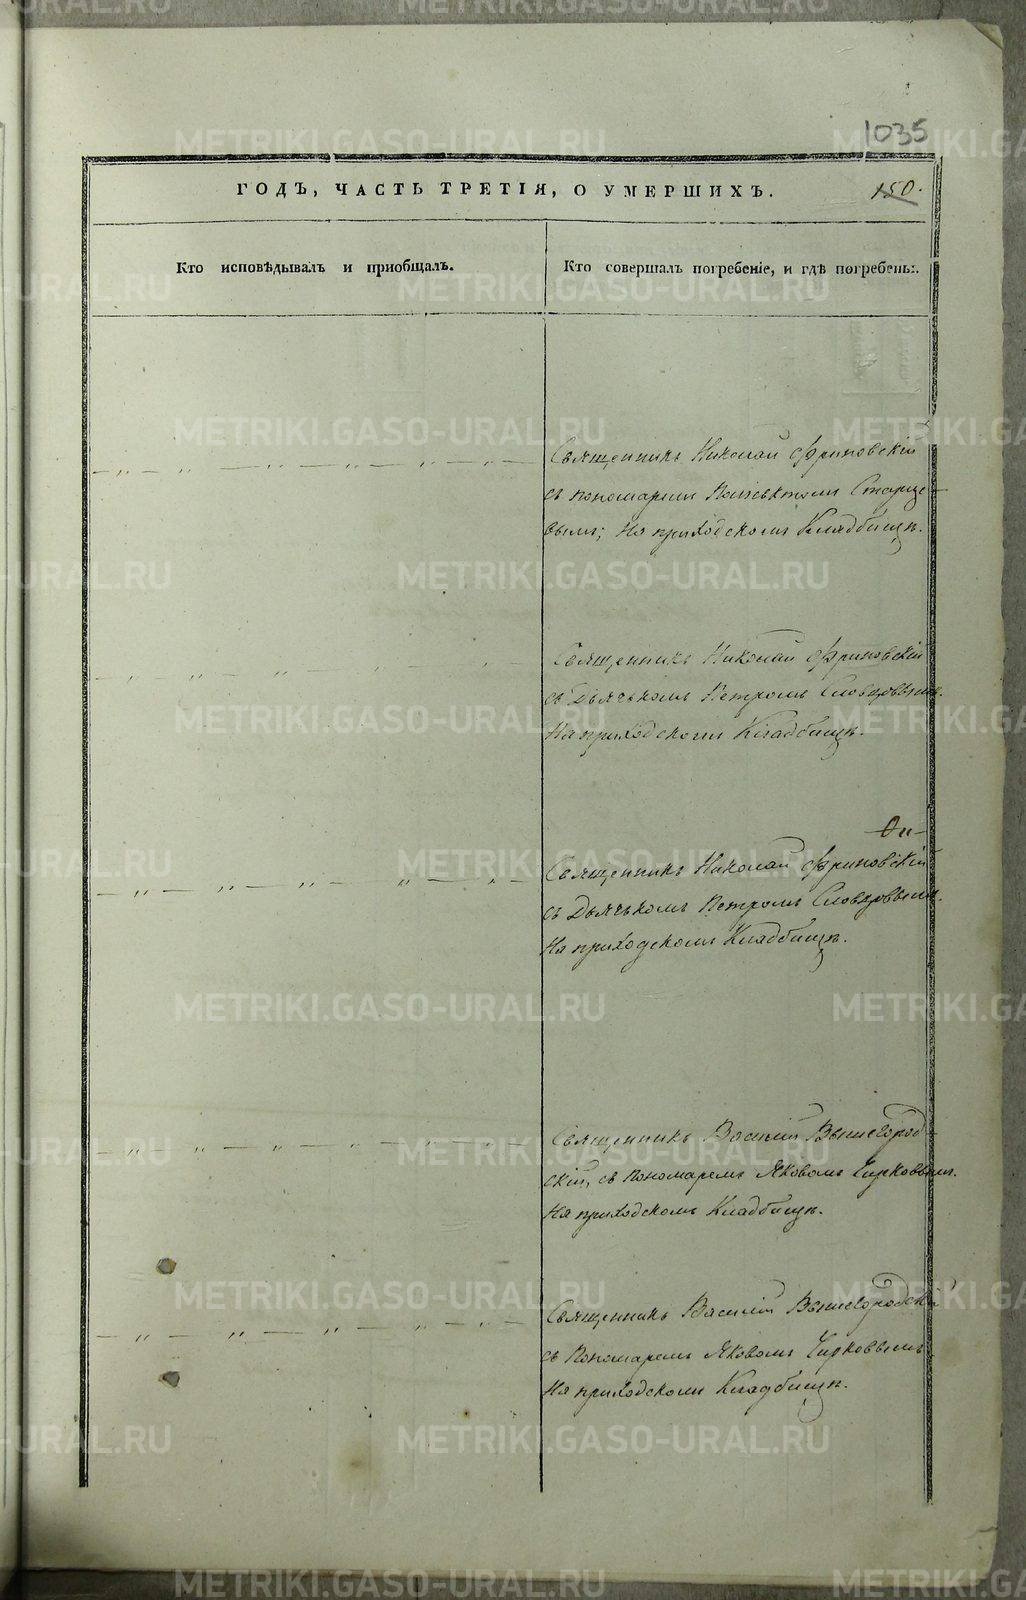 1035
ГОДЪ, ЧАСТЬ ТРЕТІЯ, О УМЕРШИХЪ.
150.
Кто исповѣдывалъ и приобщалъ.
Кто совершалъ погребеніе, и гдѣ погребены.
Священникъ Николай Фриновскій
съ пономаремъ Старце-
вымъ; На приходскомъ Кладбищѣ.
Священникъ Николай Фриновскій
съ Дьячькомъ Петромъ Словцовымъ.
На приходскомъ Кладбищѣ.
Священникъ Николай Фриновскій
съ Дьячькомъ Петромъ Словцовымъ.
На приходскомъ Кладбищѣ.
Священникъ Василій Вышегород-
скій, съ Пономаремъ Яковомъ Чирковымъ.
На приходскомъ Кладбищѣ.
Священникъ Василій Вышегородскій
съ Пономаремъ Яковомъ Чирковымъ
На приходскомъ Кладбищѣ.
METRIKI.GASO-URAL.RU